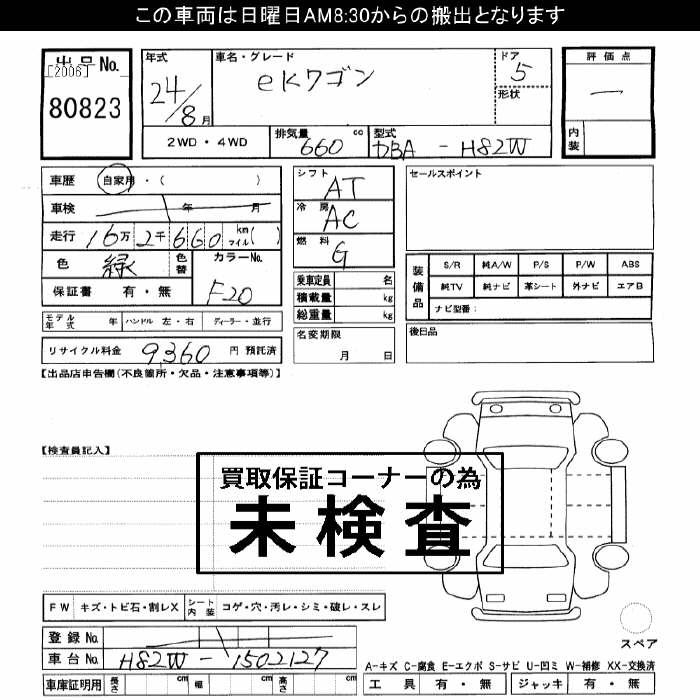 この車両は日曜日AM8:30からの搬出となります
出品No.
[2006]
80823
年式
24/8月
車名・グレード
eKワゴン
ドア
5
形状
評価点
―
内装
2WD・4WD
排気量
660 cc
型式
DBA-H82W
車歴 自家用・( )
車検 年 月
走行 16万2千660 km マイル( )
色 緑 色替
カラーNo.
F20
保証書 有・無
モデル年式 年 ハンドル 左・右 ディーラー・並行
リサイクル料金 9,360 円 預託済
シフト
AT
冷房
AC
燃料
G
乗車定員 名
積載量 kg
総重量 kg
名変期限
月 日
セールスポイント
装備品
S/R 純A/W P/S P/W ABS
純TV 純ナビ 革シート 外ナビ エアB
ナビ型番:
後日品
【出品店申告欄(不良箇所・欠品・注意事項等)】
【検査員記入】
買取保証コーナーの為
未検査
FW キズ・トビ石・割レX シート内装 コゲ・穴・汚レ・シミ・破レ・スレ
登録No.
車台No. H82W-1502127
車庫証明用 長さ cm 幅 cm 高さ cm
スペア
A-キズ C-腐食 E-エクボ S-サビ U-凹ミ W-補修 XX-交換済
工具 有・無 ジャッキ 有・無